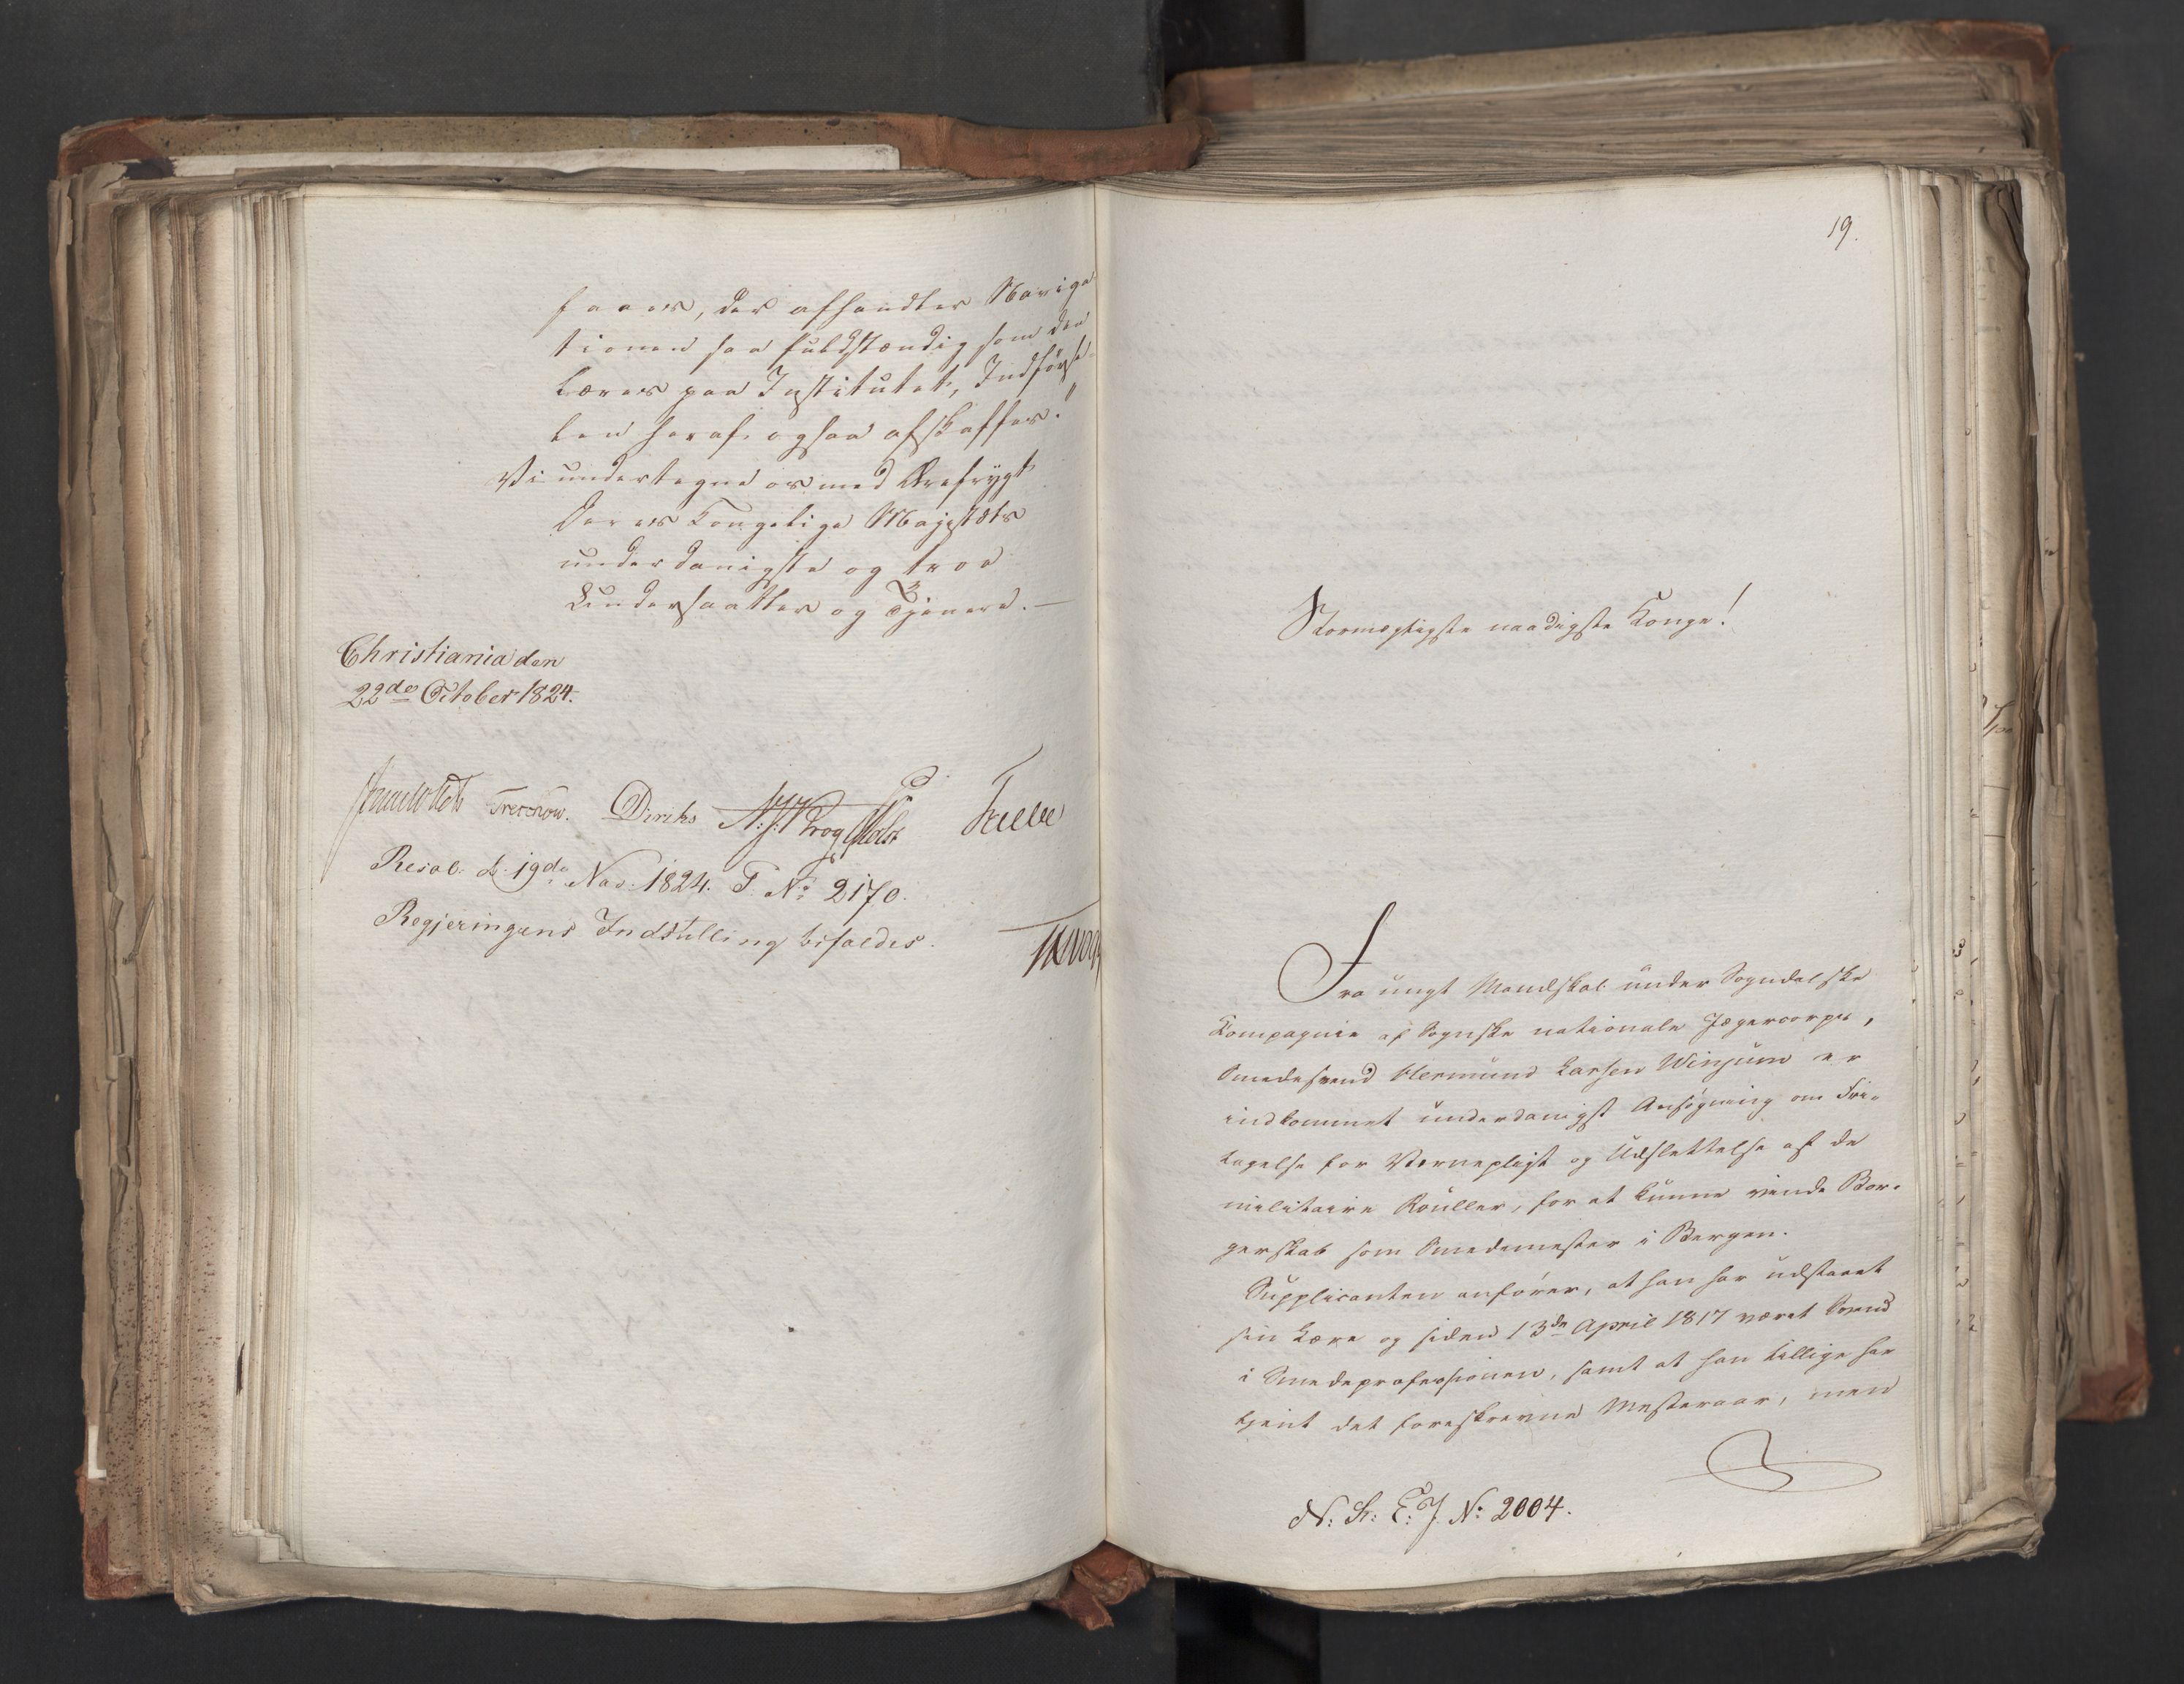 faaes, der afhandler Naviga
tionen saa fuldstændig som den
læres paa Institutet, Indførse-
len heraf ogsaa afskaffes."
Vi undertegne os med Ærefrygt
Deres Kongelige Majestæts
underdanigste og troe
Undersaatter og Tjenere. —
Christiania den
22de October 1824.
Treschow. Diriks N: J: Krog Holst Falbe
Resol: d: 19de Nov: 1824. P. No 2170.
Regjeringens Indstilling bifaldes.
19.
Stormægtigste naadigste Konge!
Fra ungt Mandskab under Sogndalske
Kompagnie af Sognske nationale Jægercorps,
Smedesvend Hermund Larsen Winjum er
indkommet underdanigst Ansøgning om Fri-
tagelse for Værnepligt og Udslettelse af de
militaire Rouller, for at kunne vinde Bor-
gerskab som Smedemester i Bergen.
Supplicanten anfører, at han har udstaaet
sin Lære og siden 13de April 1817 været Svend
i Smedeprofessionen, samt at han tillige har
tjent det foreskrevne Mesteraar, men
N: S: E: J. No: 2004.